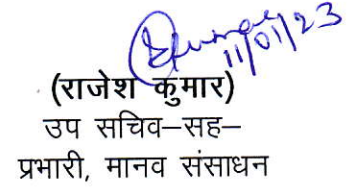 11/01/23
(राजेश कुमार)
उप सचिव–सह–
प्रभारी, मानव संसाधन